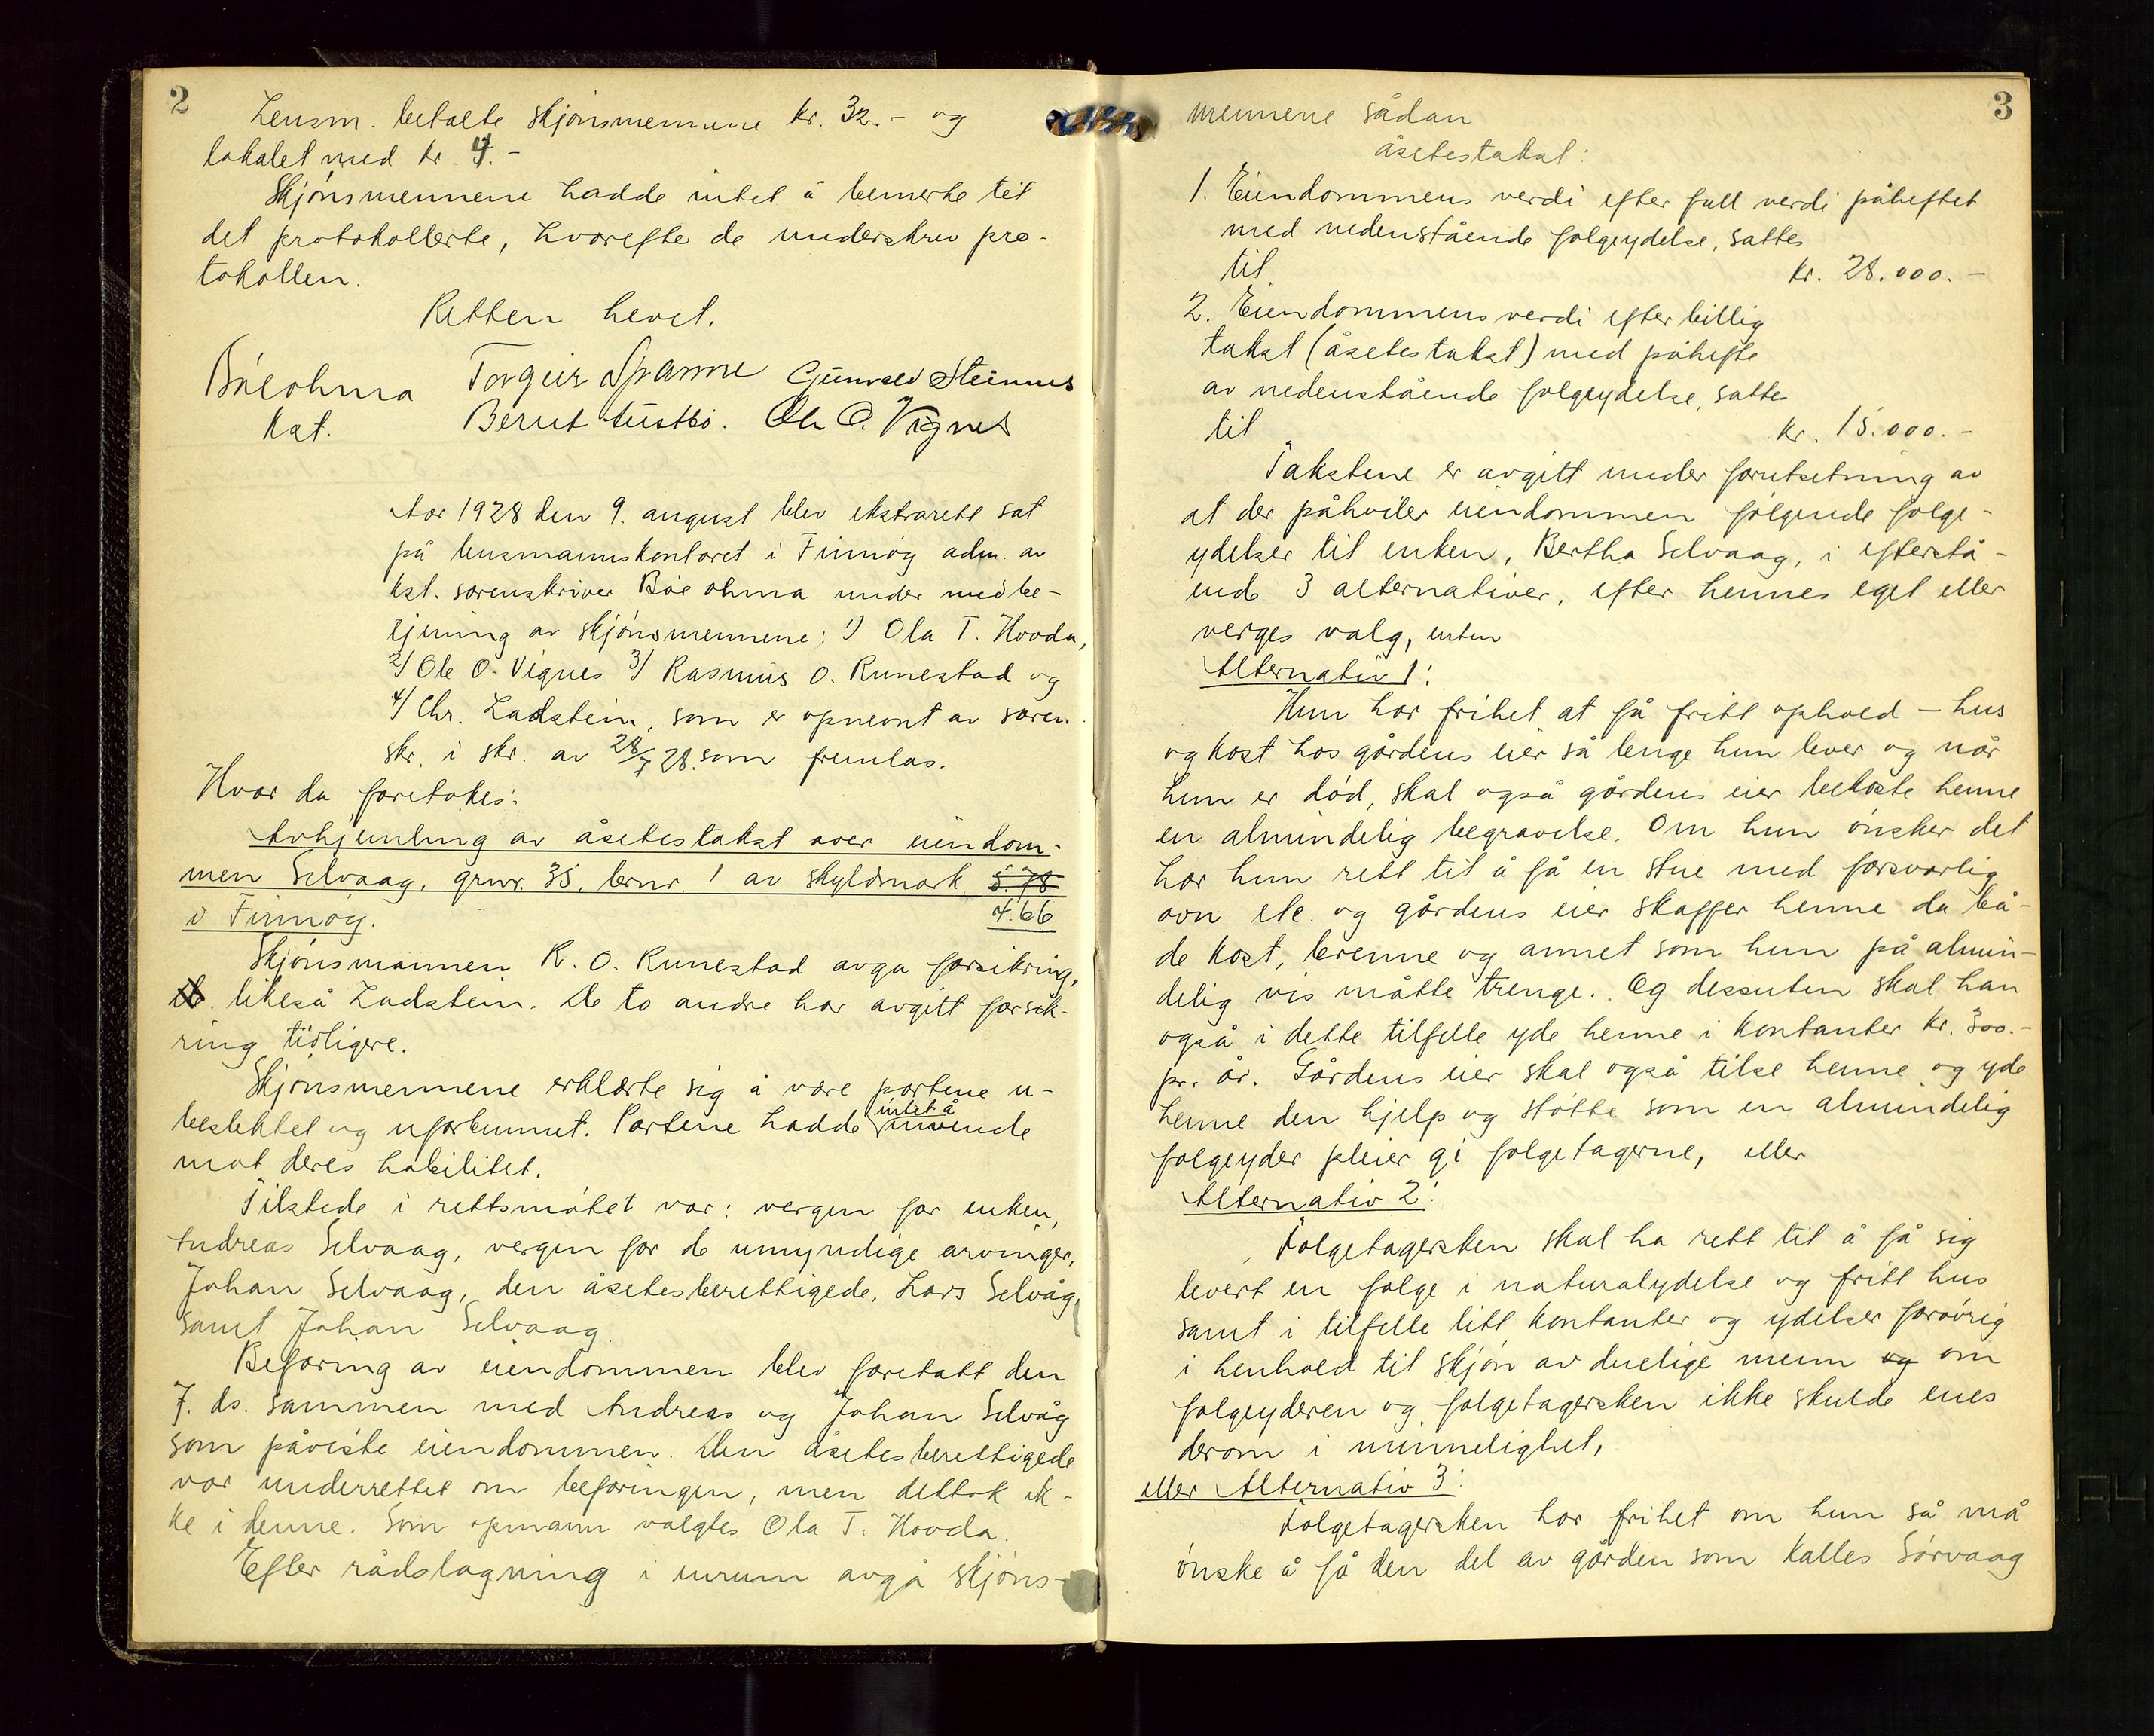 2
Lensm. betalte skjønsmennene kr. 32.- og
lokalet med kr. 4.-
Skjønsmennene hadde intet å bemerke til
det protokollerte, hvorefte de underskrev pro-
tokollen.
Retten hevet.
Torgeir Spanne Gunvald Steinnes
Bernt Austbø. Ole O. Vignes
kst.
Aar 1928 den 9. august blev ekstrarett sat
på lensmannskontoret i Finnøy adm. av
kst. sorenskriver Bøe ohma under medbe-
tjening av skjønsmennene: 1) Ola T. Hovda,
2/ Ole O. Vignes 3/ Rasmus O. Runestad og
4/ Chr. Ladstein, som er opnevnt av soren.
skr. i skr. av 28/7 28. som fremlas.
Hvor da foretokes:
Avhjemling av åsetestakst over eiendom-
men Selvaag, grnr. 35, brnr. 1 av skyldmark 5.78
i Finnøy. 4.66
Skjønsmannen R. O. Runestad avga forsikring,
likeså Ladstein. De to andre har avgitt forsik-
ring tidligere.
Skjønsmennene erklærte sig å være partene u-
beslektet og uforbunnet. Partene hadde intet å innvende
mot deres habilitet.
Tilstede i rettsmøtet var: vergen for enken,
Andreas Selvaag, vergen for de umyndige arvinger,
Johan Selvaag, den åsetesberettigede, Lars Selvåg,
samt Johan Selvaag.
Befaring av eiendommen blev foretatt den
7. ds. sammen med Andreas og Johan Selvåg
som påviste eiendommen. Den åsetesberettigede
var underrettet om befaringen, men deltok ik-
ke i denne. Som opmann valgtes Ola T. Hovda.
Efter rådslagning i enrum avga skjøns-
3
mennene sådan
åsetestakst:
1. Eiendommens verdi efter full verdi påheftet
med nedenstående følgeydelse, sattes
til kr. 28.000.-
2. Eiendommens verdi efter billig
takst (åsetestakst) med påhefte
av nedenstående følgeydelse, satte
til kr. 15.000.-
Takstene er avgitt under forutsetning av
at der påhviler eiendommen følgende følge-
ydelser til enken, Bertha Selvaag, i efterstå-
ende 3 alternativer, efter hennes eget eller
verges valg, enten
Alternativ 1:
Hun har frihet at få fritt ophold - hus
og kost hos gårdens eier så lenge hun lever og når
hun er død, skal også gårdens eier bekoste henne
en almindelig begravelse. Om hun ønsker det
har hun rett til å få en stue med forsvarlig
ovn etc. og gårdens eier skaffer henne da bå-
de kost, brenne og annet som hun på almin-
delig vis måtte trenge. Og dessuten skal han
også i dette tilfelle yde henne i kontanter kr. 300.-
pr. år. Gårdens eier skal også tilse henne og yde
henne den hjelp og støtte som en almindelig
følgeyder pleier gi følgetagerne, eller
Alternativ 2:
Følgetagersken skal ha rett til å få sig
levert en følge i naturalydelse og fritt hus
samt i tilfelle litt kontanter og ydelser forøvrig
i henhold til skjøn av duelige menn og om
følgeyderen og følgetagersken ikke skulde enes
derom i minnelighet,
eller Alternativ 3:
Følgetagersken har frihet om hun så må
ønske å få den del av gården som kalles Sørvaag